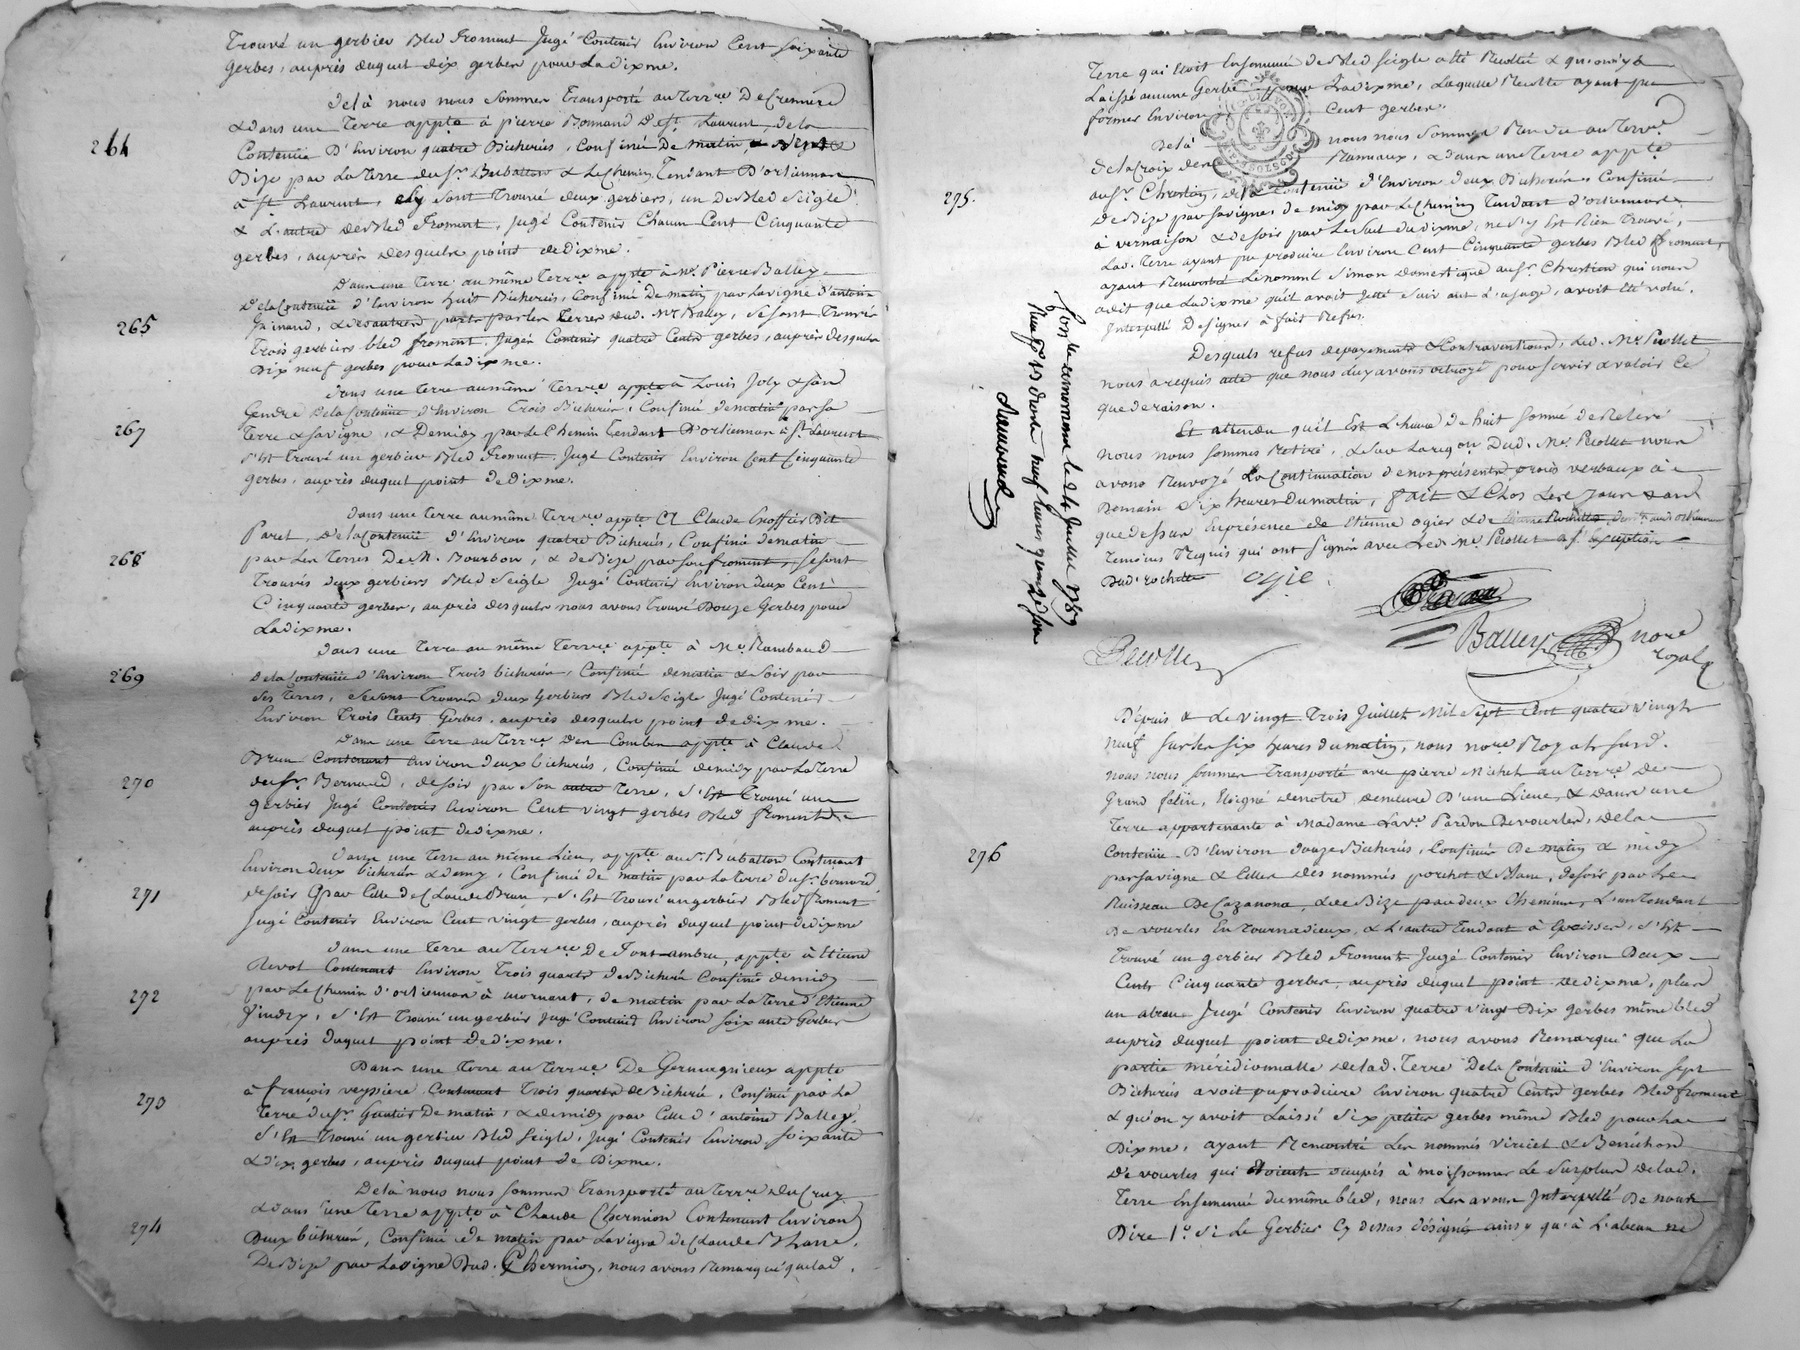 Trouvé un gerbier Bled froment Jugé Contenir Environ Cent soixante
Gerbes, auprès duquel dix gerbes pour La dixme.
De là nous nous sommes Transporté au Terr.re De
264
& dans une Terre appte à pierre Bonnand de St. Laurent, de la
Contenüe D'Environ quatre Bicherées, Confinée De matin,
Bize par La Terre du Sr. & Le Chemin Tendant D'orliennas
à St. Laurent, S'y sont Trouvé deux gerbiers, un de Bled Seigle
& L'autre de Bled froment, Jugé Contenir Chacun Cent Cinquante
gerbes, auprès desquels point de Dixme.
Dans une Terre au même Terr.re appte à Mr. Pierre Balley
265
De la Contenüe d'Environ huit Bicherées, Confiné De matin par La vigne d'antoine
par les Terres dud. Mr. Balley, se sont Trouvés
Trois gerbiers bled froment, Jugés Contenir quatre Cents gerbes, auprès desquels
Dix neuf gerbes pour La dixme.
Dans une Terre au même Terr.re appte à Louis Joly & son
267
Gendre de la Contenüe d'Environ Trois Bicherées, Confiné de matin par sa
Terre & sa vigne, & De midy par le Chemin Tendant D'orliennas à St. Laurent
s'Est Trouvé un gerbier Bled froment, Jugé Contenir Environ Cent Cinquante
gerbes, auprès duquel point de Dixme.
Dans une Terre au même Terr.re appte à Claude Dit
268
Paret, de la Contenüe d'Environ quatre Bicherées, Confiné de matin
par Les Terres De M. Bourbon, & de Bize par son froment, se sont
Trouvés deux gerbiers Bled Seigle Jugé Contenir Environ deux Cent
Cinquante gerbes, auprès desquels nous avons Trouvé Douze Gerbes pour
La dixme.
Dans une Terre au même Terr.re appte à Mr. Rambaud
269
de la Contenüe d'Environ Trois bicherées, Confiné de matin & soir par
ses Terres, se sont Trouvés deux Gerbiers Bled Seigle Jugé Contenir
Environ Trois Cents Gerbes, auprès desquels point de dixme.
Dans une Terre au Terr.re Des Combes appte à Claude
270
Brun Contenant Environ deux bicherées, Confiné de midy par La Terre
du Sr. Bernard, de soir par Son autre Terre, s'Est Trouvé un
gerbier Jugé Contenir Environ Cent vingt gerbes Bled froment
auprès duquel point de dixme.
Dans une Terre au même Lieu, appte au Sr. Contenant
271
Environ deux bicherées & demy, Confiné de matin par La Terre du Sr. bernard
de soir par Celle de Claude Brun, s'Est Trouvé un gerbier Bled froment
Jugé Contenir Environ Cent vingt gerbes, auprès duquel point de dixme
Dans une Terre au Terr.re De appte à Etienne
272
Revol Contenant Environ Trois quarts de Bicherée Confiné de midy
par Le Chemin d'orliennas à mornant, de matin par La Terre d'Etienne
s'Est Trouvé un gerbier Jugé Contenir Environ soixante Gerbes
auprès duquel point de dixme.
Dans une Terre au Terr.re De appte
273
à françois veyssiere Contenant Trois quarts de Bicherée, Confiné par La
Terre du Sr. De matin, & de midy par Celle d'antoine Balley,
s'Est Trouvé un gerbier Bled Seigle, Jugé Contenir Environ soixante
& Dix gerbes, auprès duquel point de Dixme.
De là nous nous sommes Transporté au Terr.re du Cray
274
& dans une Terre appte à Claude Chermion Contenant Environ
Deux bicherées, Confiné de matin par La vigne de Claude
De Bize par La vigne Dud. Chermion, nous avons Remarqué que Lad.
Terre qui Etoit Ensemencée de Bled Seigle a Eté Recolté & qu'on n'y a
Laissé aucune Gerbe pour La dixme, Laquelle Recolte ayant pu
former Environ Cent gerbes.
De là nous nous sommes Rendu au Terr.re
275.
de La Croix des Rameaux, & dans une Terre appte
au Sr. Chrestien, de la Contenüe d'Environ deux Bicherées, Confiné
de Bize par sa vigne, de midy par Le Chemin Tendant d'orliennas
à vernaison & de soir par ne s'y Est Rien Trouvé,
Lad. Terre ayant pu produire Environ Cent Cinquante gerbes Bled froment,
ayant Rencontré Le nommé Simon domestique au Sr. Chrestien qui nous
a dit que La dixme qu'il avoit suivant L'usage, avoit Eté volé,
Interpellé De signer à fait Refus.
Desquels refus de payement & Contraventions, led. Mr. Piollet
nous a requis acte que nous Luy avons octroyé pour servir & valoir Ce
que de raison.
Et attendu qu'il Est L'heure de huit sonné de Relevé
nous nous sommes Retiré, & sur La réq.on Dud. Mr. Piollet nous
avons Renvoyé La Continuation de nos présents procès verbaux à
Demain Six heures Du matin, fait & Clos Led. Jour & an
que dessus En présence de Etienne ogier & de
Temoins Requis qui ont signés avec Led. Mr. Piollet à L'Exception
Dud. rochette ogié
Balley nore
royal
Piollet
le 24 Juillet 1789
Depuis & Le vingt Trois Juillet Mil Sept Cent quatre vingt
neuf sur les six heures du matin, nous nore Royal susd.
nous nous sommes Transporté avec pierre Michel au Terr.re De
Grand felin, Eloigné de notre demeure D'une Lieue, & dans une
Terre appartenante à Madame La ve. Pardon De vourles, de la
276
Contenüe D'Environ douze Bicherées, Confinée De matin & midy
par sa vigne & Celles des nommés & de soir par Le
Ruisseau De & de Bize par deux Chemins, L'un Tendant
De vourles En Tournadieux, & L'autre Tendant à s'Est
Trouvé un gerbier Bled froment Jugé Contenir Environ Deux
Cents Cinquante gerbes, auprès duquel point de dixme, plus
un abeau Jugé Contenir Environ quatre vingt Dix gerbes même bled
auprès duquel point de dixme. nous avons Remarqué que La
partie méridionnalle de lad. Terre De la Contenüe d'Environ sept
Bicherées avoit pu produire Environ quatre Cents gerbes Bled froment
& qu'on y avoit Laissé Six petites gerbes même Bled pour La
Dixme, ayant Rencontré Les nommés viricel & Bernichon
De vourles qui étoient occupés à moissonner Le Surplus de lad.
Terre Ensemencé du même bled, nous Les avons Interpellé De nous
Dire 1.o Si Le Gerbier Cy dessus désigné ainsy qu'à L'abeau ne